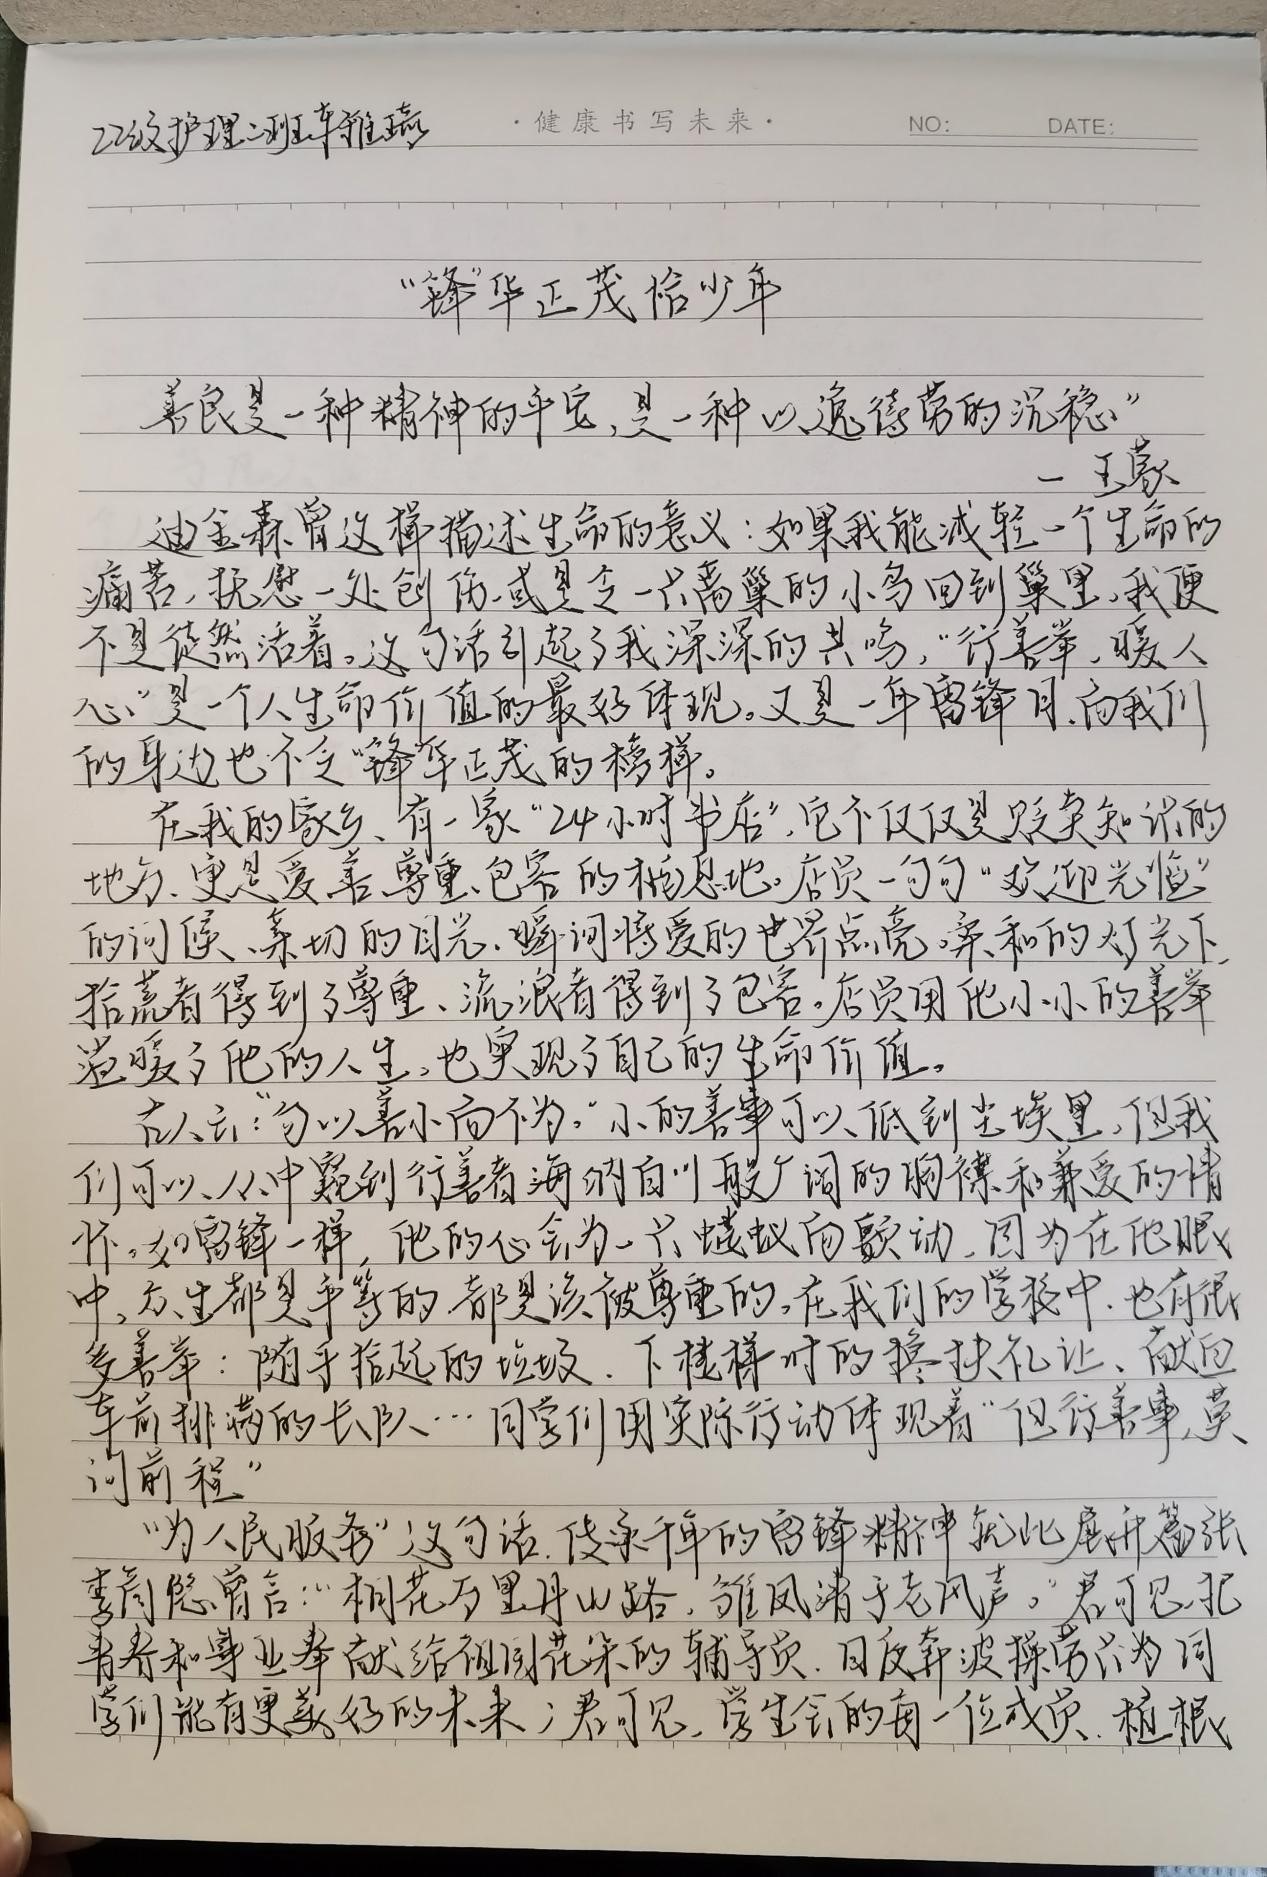 22级护理二班车雅瑄
·健康书写未来·
NO:
DATE:
“锋”华正茂恰少年
善良是一种精神的平安,是一种以逸待劳的沉稳”
—王蒙
迪金森曾这样描述生命的意义:如果我能减轻一个生命的
痛苦,抚慰一处创伤,或是令一只离巢的小鸟回到巢里,我便
不是徒然活着。这句话引起了我深深的共鸣,“行善举,暖人
心”是一个人生命价值的最好体现。又是一年雷锋月,而我们
的身边也不乏“锋”华正茂的榜样。
在我的家乡、有一家“24小时书店”,它不仅仅是贩卖知识的
地方、更是爱善、尊重、包容的栖息地。店员一句句“欢迎光临”
的问候、亲切的目光、瞬间将爱的世界点亮。柔和的灯光下,
拾荒者得到了尊重、流浪者得到了包容。店员用他小小的善举
温暖了他的人生,也实现了自己的生命价值。
古人云:“勿以善小而不为。”小的善事可以低到尘埃里,但我
们可以从中窥到行善者海纳百川般广阔的胸襟和兼爱的情
怀。如雷锋一样,他的心会为一只蝼蚁而颤动,因为在他眼
中,众生都是平等的都是该被尊重的。在我们的学校中.也有很
多善举:随手拾起的垃圾.下楼梯时的搀扶礼让、献血
车前排满的长队…同学们用实际行动体现着“但行善事,莫
问前程”
“为人民服务”这句话.传承千年的雷锋精神就此展开篇张
李商隐曾言:“桐花万里丹山路,雏凤清于老凤声。”君可见,把
青春和事业奉献给祖国花朵的辅导员.日夜奔波操劳只为同
学们能有更美好的未来;君可见,学生会的每一位成员.植根